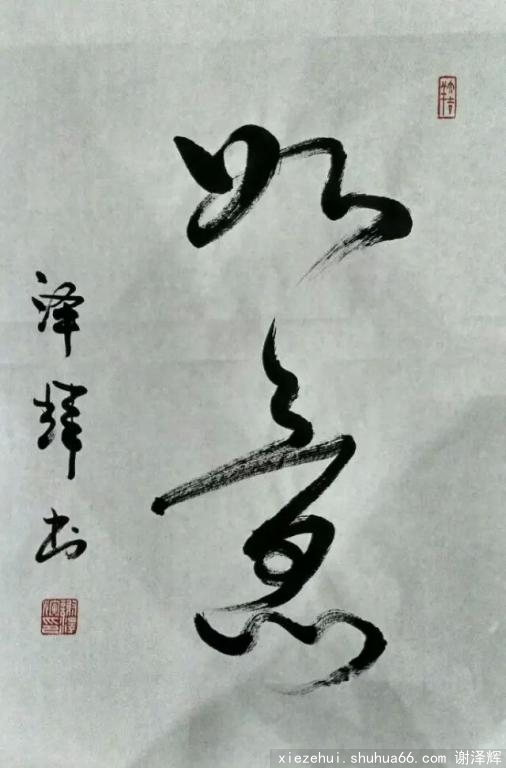 如意
泽辉书
谢泽辉印
xiezehui.shuhua66.com 谢泽辉